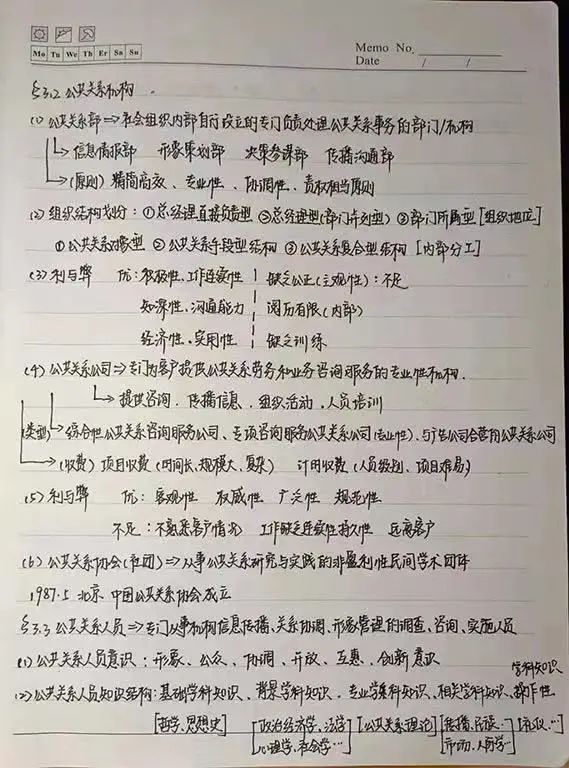 Memo No.
Mo Tu We Th Fr Sa Su
Date / /
§3.2 公共关系机构
(1) 公共关系部⇒社会组织内部自行设立的专门负责处理公共关系事务的部门/机构
→信息情报部 形象策划部 决策参谋部 传播沟通部
→(原则) 精简高效、专业性、协调性、责权相当原则
(2) 组织结构划分：①总经理直接负责型 ②总经理型(部门并列型) ③部门所属型 [组织地位]
①公共关系对象型 ②公共关系手段型结构 ③公共关系复合型结构 [内部分工]
(3) 利与弊 优：积极性、工作连续性 缺乏公正(主观性)：不足
知深性、沟通能力 阅历有限(内部)
经济性、实用性 缺乏训练
(4) 公共关系公司⇒专门为客户提供公共关系劳务和业务咨询服务的专业性机构.
→提供咨询、传播信息、组织活动、人员培训
(类型)→综合性公共关系咨询服务公司、专项咨询服务公共关系公司(专业性)、与广告公司合营的公共关系公司
→(收费) 项目收费(时间长、规模大、复杂) 计时收费(人员级别、项目难易)
(5) 利与弊 优：客观性 权威性 广泛性 规范性
不足：不熟悉客户情况 工作缺乏连续性持久性 远离客户
(6) 公共关系协会(社团)⇒从事公共关系研究与实践的非盈利性民间学术团体
1987.5 北京 中国公共关系协会成立
§3.3 公共关系人员⇒专门从事机构信息传播、关系协调、形象管理的调查、咨询、实施人员
(1) 公共关系人员意识：形象、公众、协调、开放、互惠、创新意识
学科知识
(2) 公共关系人员知识结构：基础学科知识、背景学科知识、专业学科知识、相关学科知识、操作性
[哲学、思想史] [政治经济学、法学 [公共关系理论] [传播、民族… [礼仪…]
心理学、社会学…] 市场、人際学…]